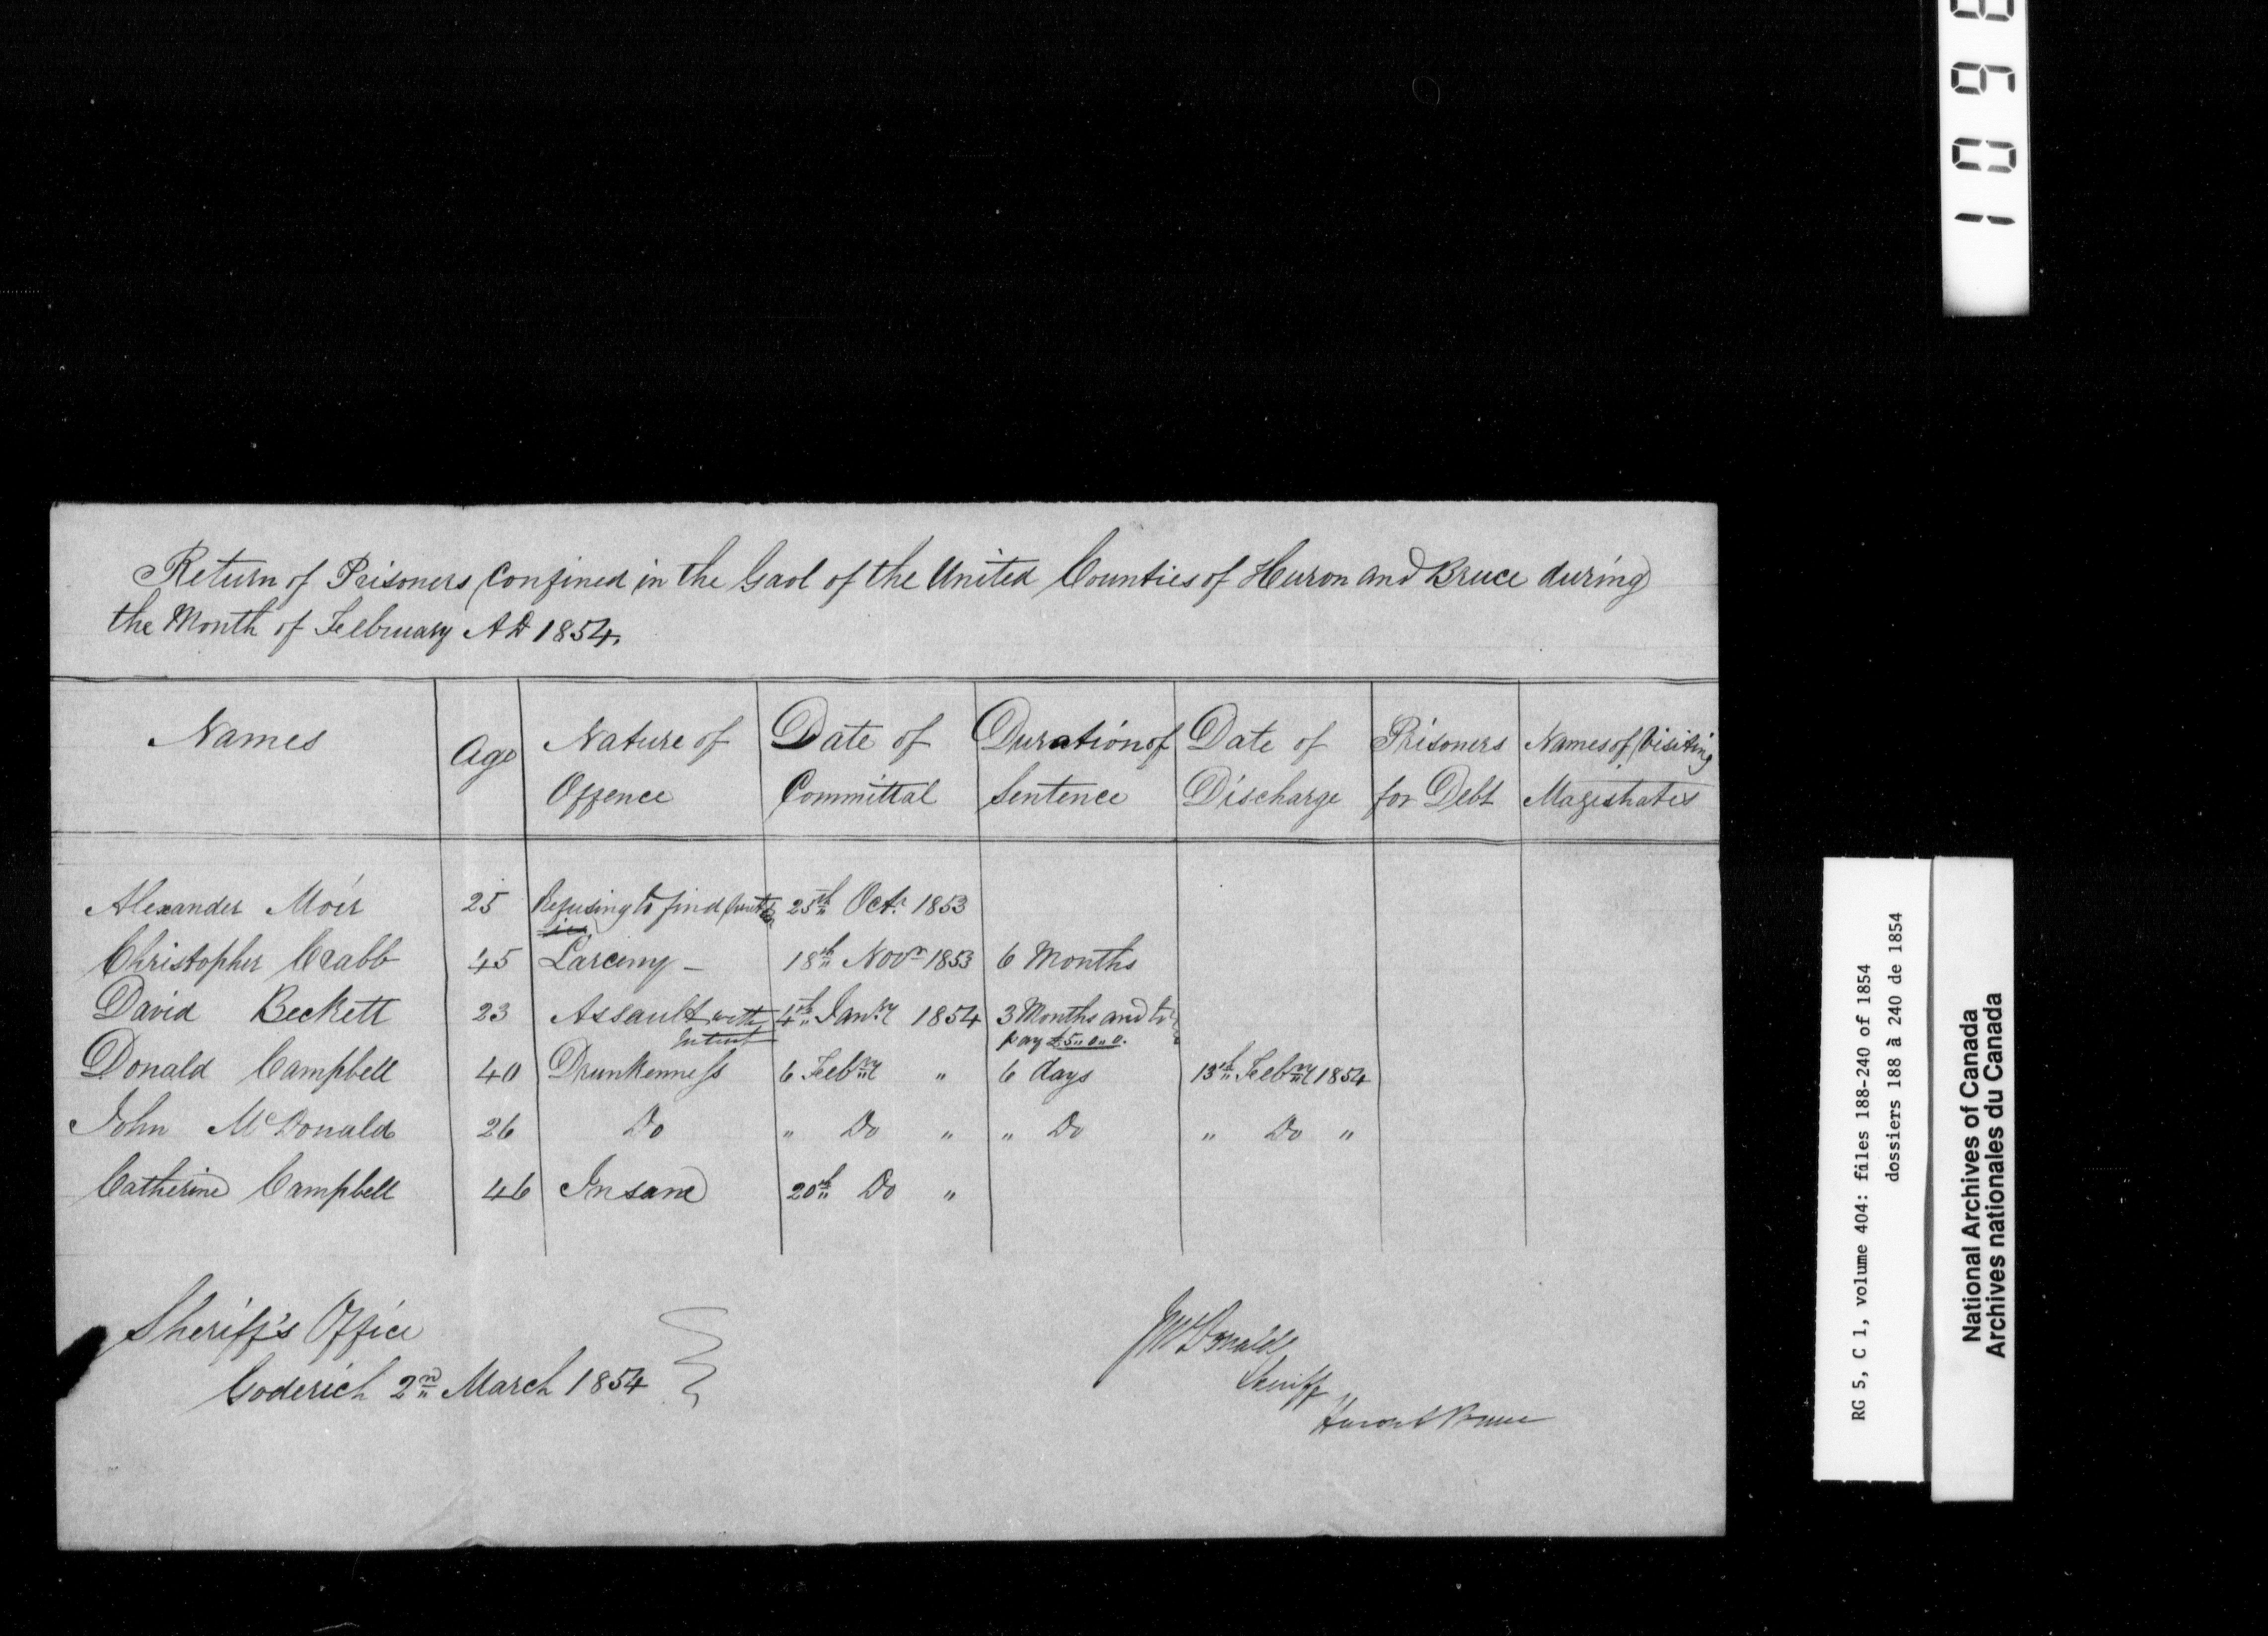 Return of Prisoners Confined in the Gaol of the United Counties of Huron and Bruce during
the Month of February AD 1854.
Names Age Nature of Offence Date of Committal Duration of Sentence Date of Discharge Prisoners for Debt Names of Visiting Magistrates
Alexander Moir 25 Refusing to find 25th Octr 1853
Christopher Crabb 45 Larceny – 18th Novr 1853 6 Months
David Beckett 23 Assault with intent 4th Jany 1854 3 Months and to pay £5„0„0.
Donald Campbell 40 Drunkenness 6 Feby " 6 days 13th Feby 1854
John McDonald 26 Do " Do " " Do " Do "
Catherine Campbell 46 Insane 20th Do "
Sheriff's Office
Goderich 2nd March 1854
J McDonald
Sheriff
Huron & Bruce
RG 5, C 1, volume 404: files 188-240 of 1854
dossiers 188 à 240 de 1854
National Archives of Canada
Archives nationales du Canada